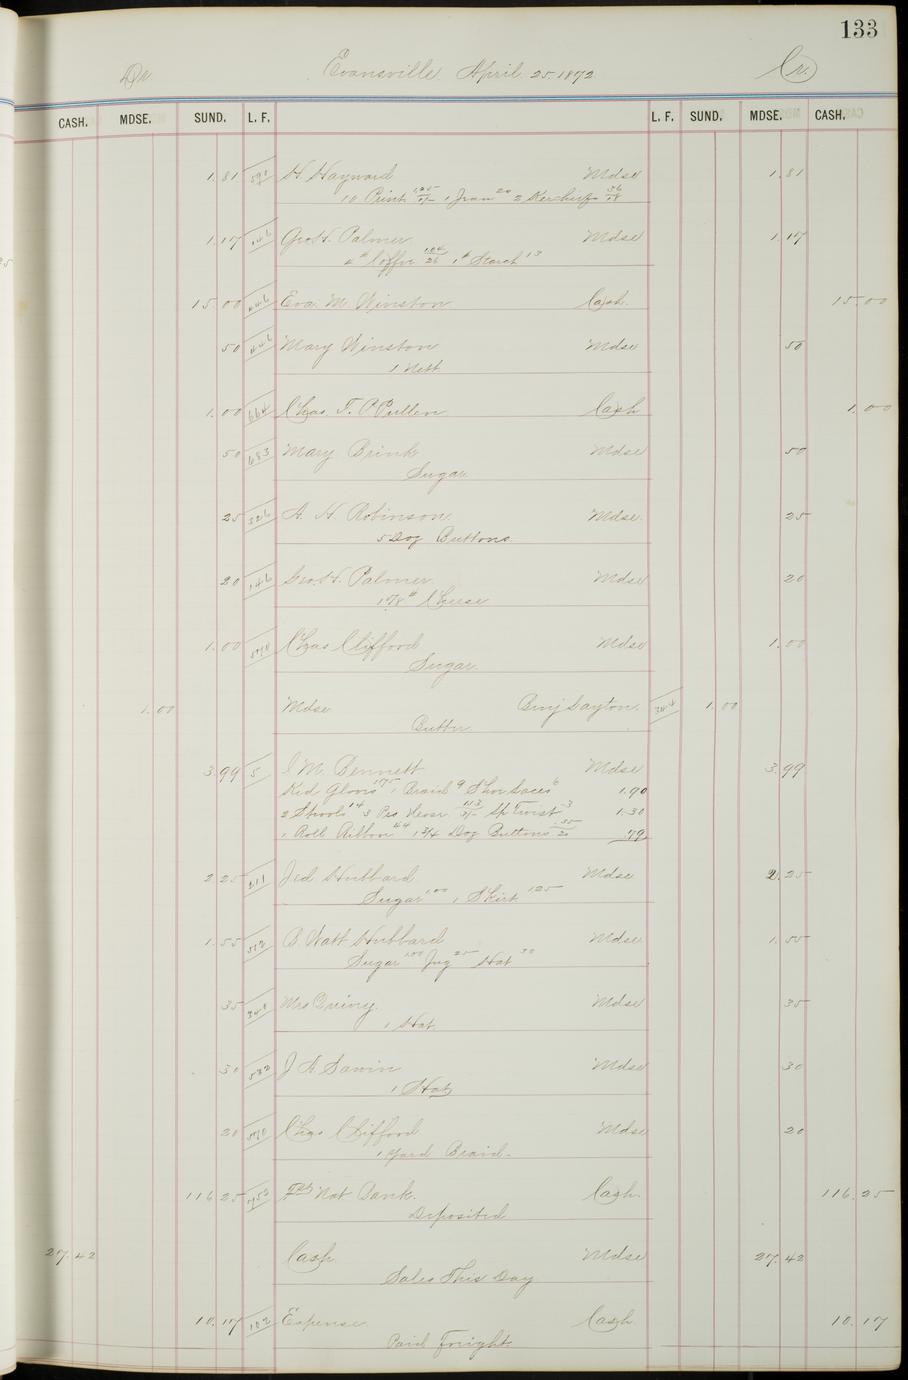 133
Dr Evansville April 25 1872 Cr.
CASH. MDSE. SUND. L. F. L. F. SUND. MDSE. CASH.
1.81 H. Hayward Mdse 1.81
10 Print 1 Jean 20 2 Kerchiefs 36/18
1.17 146 Geo. H. Palmer Mdse 1.17
4# Coffee 1.04/26 1# Starch 13
15.00 446 Eva. M. Winston Cash 15.00
50 446 Mary Winston Mdse 50
1 Nett
1.00 664 Chas. F. P. Pullen Cash 1.00
50 683 Mary Brink Mdse 50
Sugar
25 526 A. H. Robinson Mdse. 25
5 Doz Buttons
20 146 Geo. H. Palmer Mdse 20
1 7/8# Cheese
1.00 Chas Clifford Mdse 1.00
Sugar
1.00 Mdse Benj Layton 344 1.00
Butter
3.99 5 I M. Bennett Mdse 3.99
Kid Gloves 175 1 Braid 9 Shoe Laces 6 1.90
2 Spools 14 3 Prs Hose 1.13 Sp Twist 3 1.30
1 Roll Ribbon 44 1 3/4 Doz Buttons 35/20 .79
2.25 211 Jed Hubbard Mdse 2.25
Sugar 1.00 1 Skirt 125
1.55 512 B. Watt Hubbard Mdse 1.55
Sugar 1.00 Jug 25 Hat 30
35 Mrs Quivey Mdse 35
1 Hat
30 582 J A Sawin Mdse 30
1 Hat
20 Chas Clifford Mdse 20
1 Yard Braid.
116.25 1st Nat Bank. Cash. 116.25
Deposited
27.42 Cash Mdse 27.42
Sales This Day
10.17 102 Expense Cash 10.17
Paid Freight.